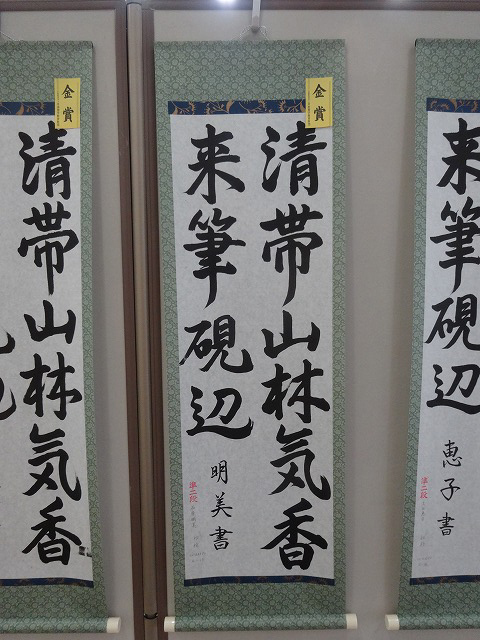 金賞
清帯山林気香
来筆硯辺
明美書
準二段
金賞
清帯山林気香
来筆硯辺
恵子書
準二段